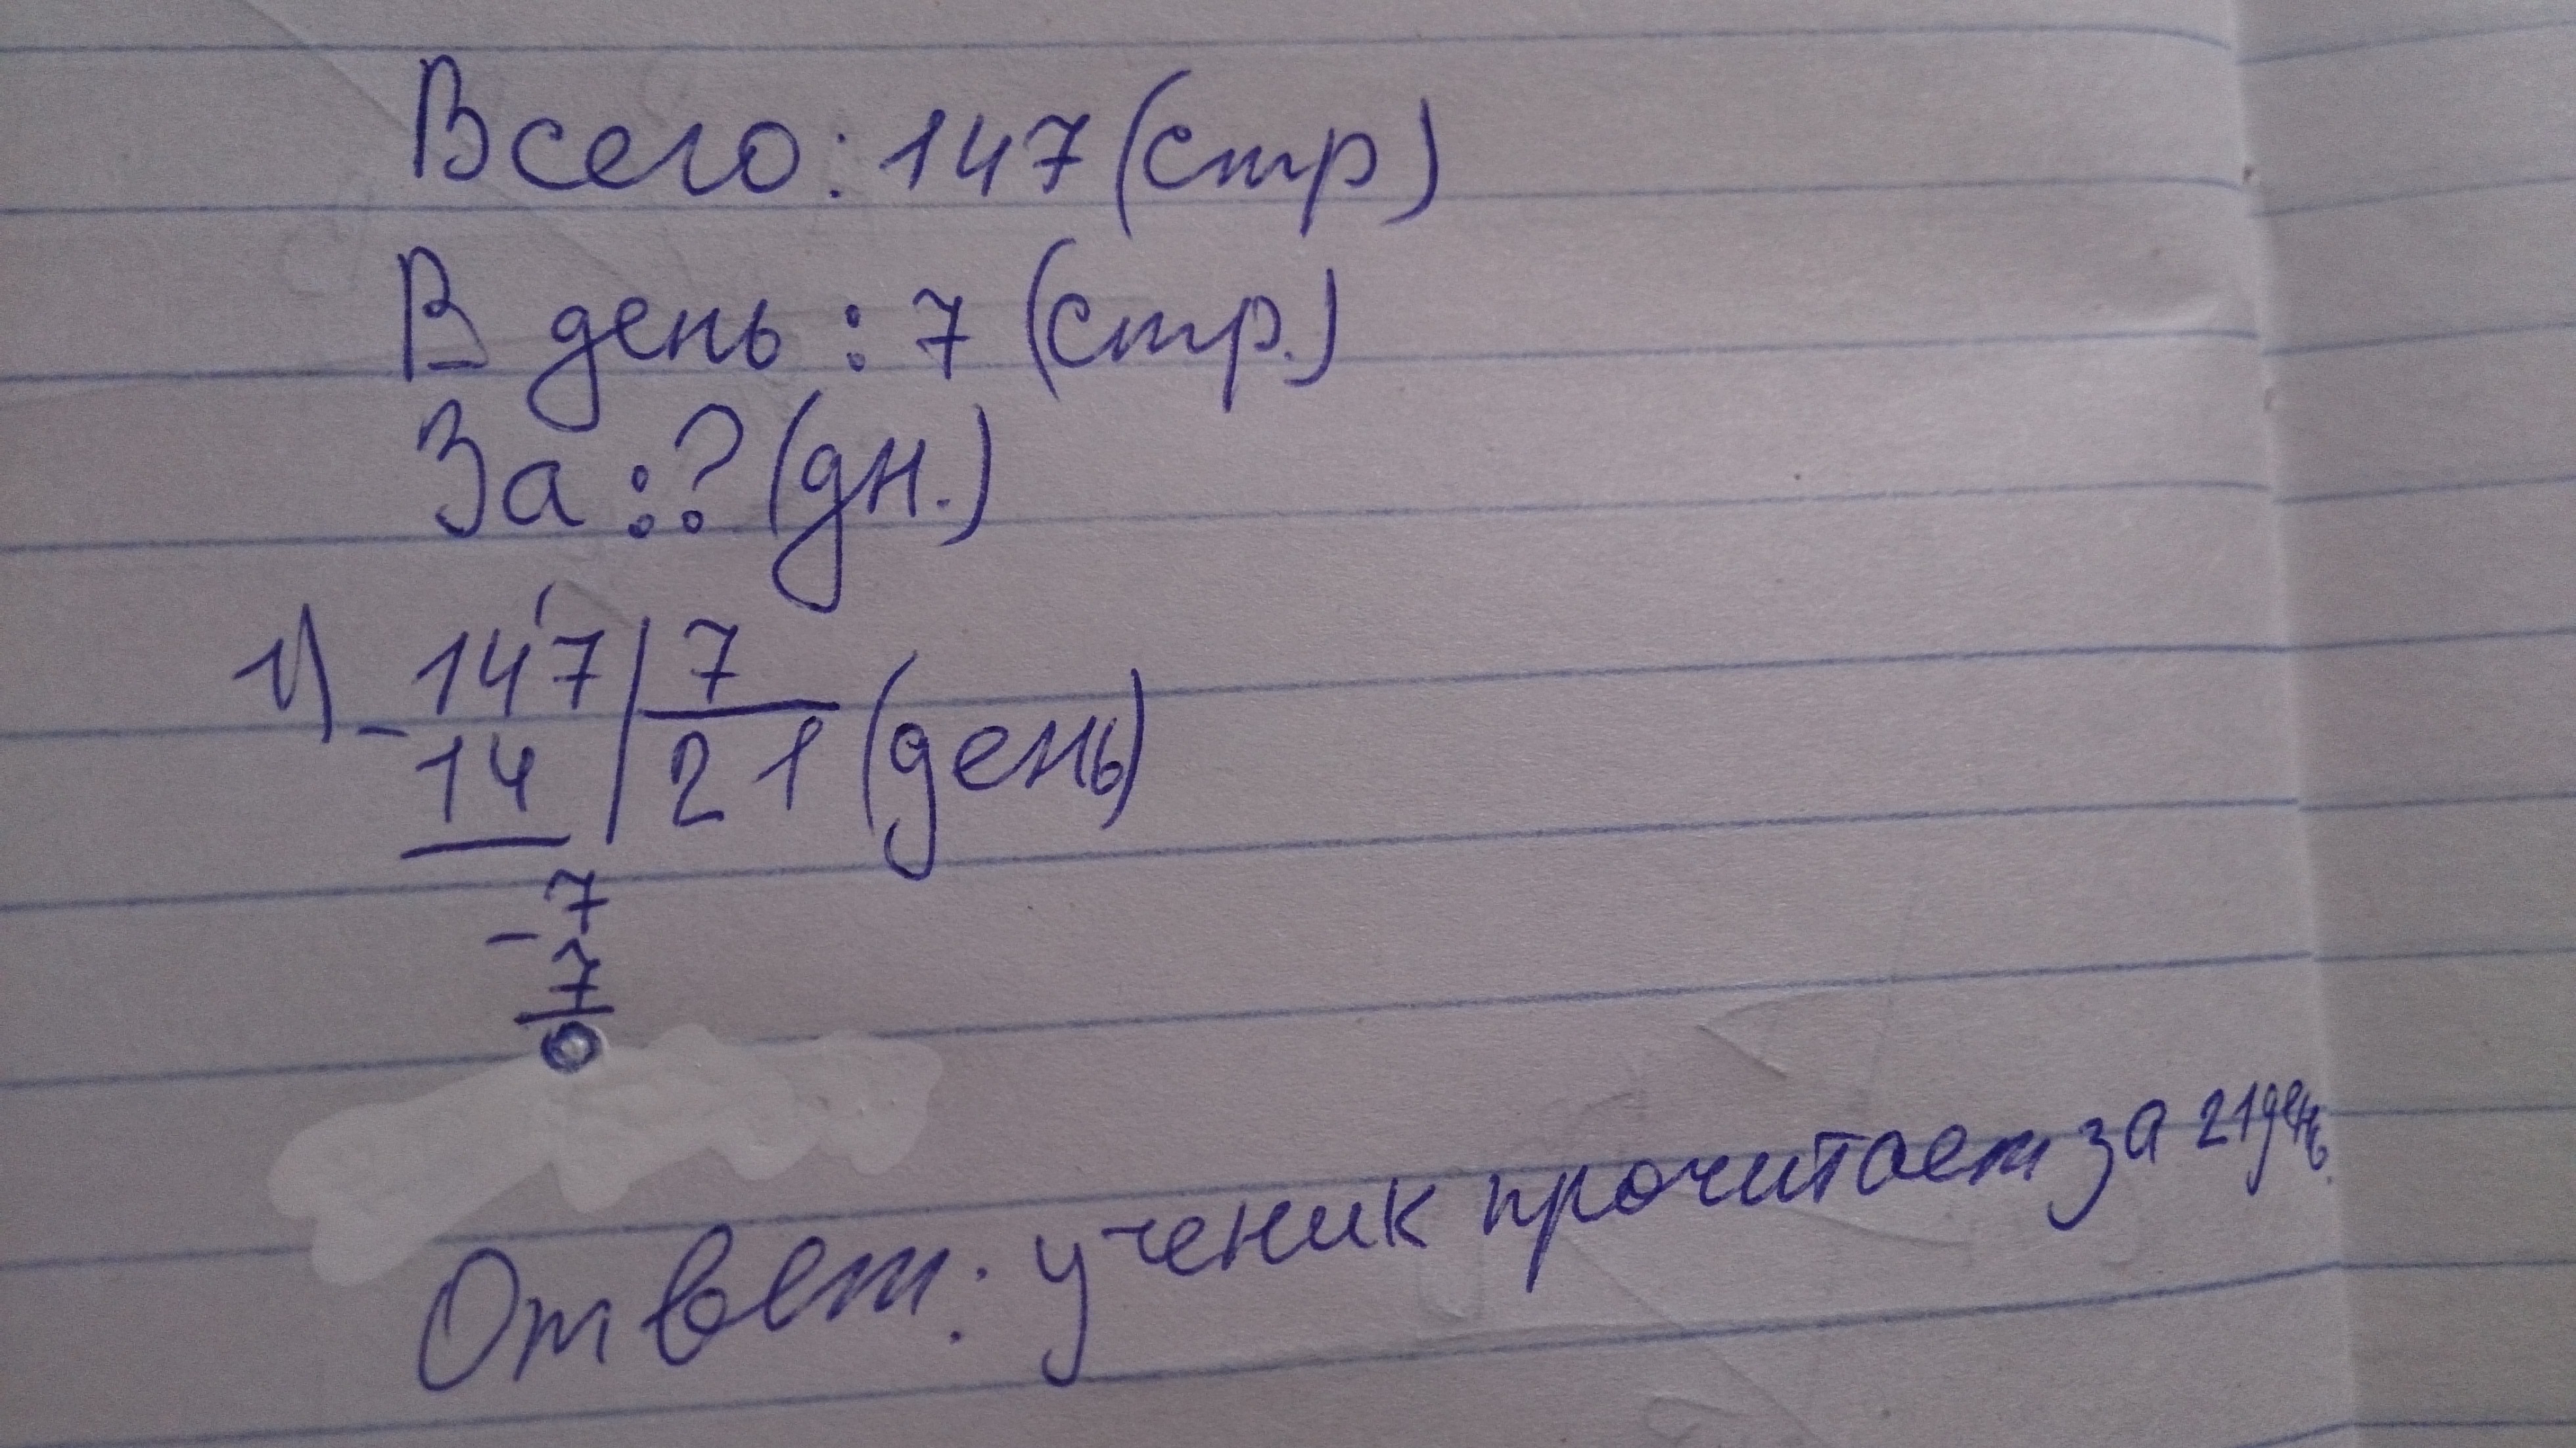 Всего: 147 (стр)
В день: 7 (стр.)
За: ? (дн.)
1) - 147 | 7
14 | 21 (день)
- 7
7
0
Ответ: ученик прочитает за 21 день.